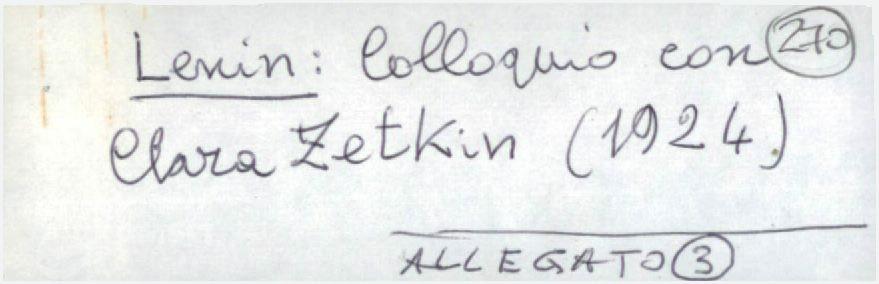 Lenin: Colloquio con 270
Clara Zetkin (1924)
ALLEGATO 3